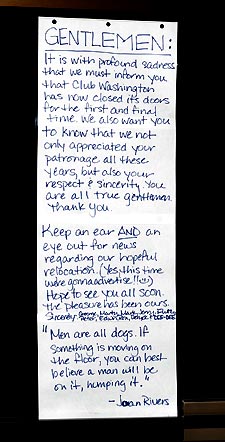 GENTLEMEN:
It is with profound sadness
that we must inform you
that Club Washington
has now closed its doors
for the first and final
time. We also want you
to know that we not
only appreciated your
patronage all these
years, but also your
respect & sincerity. You
are all true gentlemen.
Thank you.
Keep an ear AND an
eye out for news
regarding our hopeful
relocation. (Yes, this time
we're gonna advertise!!)
Hope to see you all soon.
The pleasure has been ours.
Sincerely,
"Men are all dogs. If
something is moving on
the floor, you can best
believe a man will be
on it, humping it."
- Joan Rivers